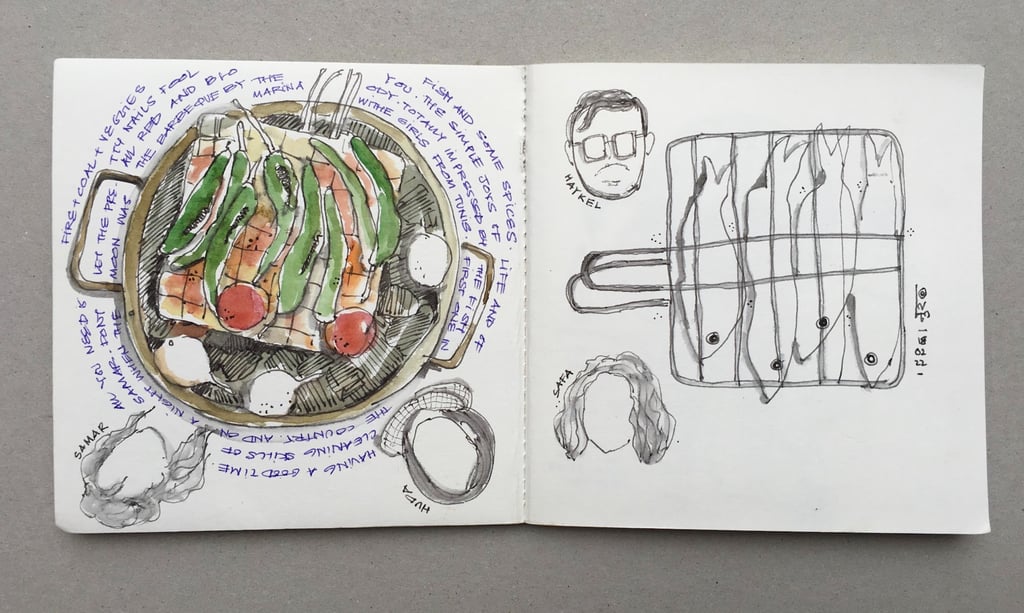 THE BARBEQUE BY THE MARINA WITHE GIRLS FROM TUNIS. FIRST ONE IN THE COUNTRY. AND ON
A NIGHT WHEN THE MOON WAS ALL RED AND BLOODY. TOTALLY IMPRESSED BY THE FISH CLEANING SKILLS OF
SAMAR. DONT LET THE PRETTY NAILS FOOL YOU. THE SIMPLE JOYS OF LIFE AND OF HAVING A GOOD TIME.
ALL YOU NEED IS FIRE + COAL + VEGGIES FISH AND SOME SPICES.
SAMAR
HUDA
HAYKEL
SAFA